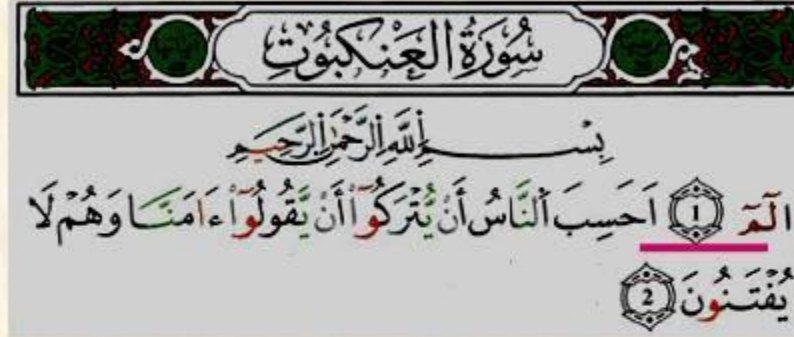 سُورَةُ الْعَنْكَبُوتِ
بِسْمِ اِ۬للَّهِ اِ۬لرَّحْمَٰنِ اِ۬لرَّحِيمِ
الٓمٓ 1 اَحَسِبَ اَ۬لنَّاسُ أَنْ يُّتْرَكُوٓاْ أَنْ يَّقُولُوٓاْ ءَامَنَّا وَهُمْ لَا
يُفْتَنُونَ 2